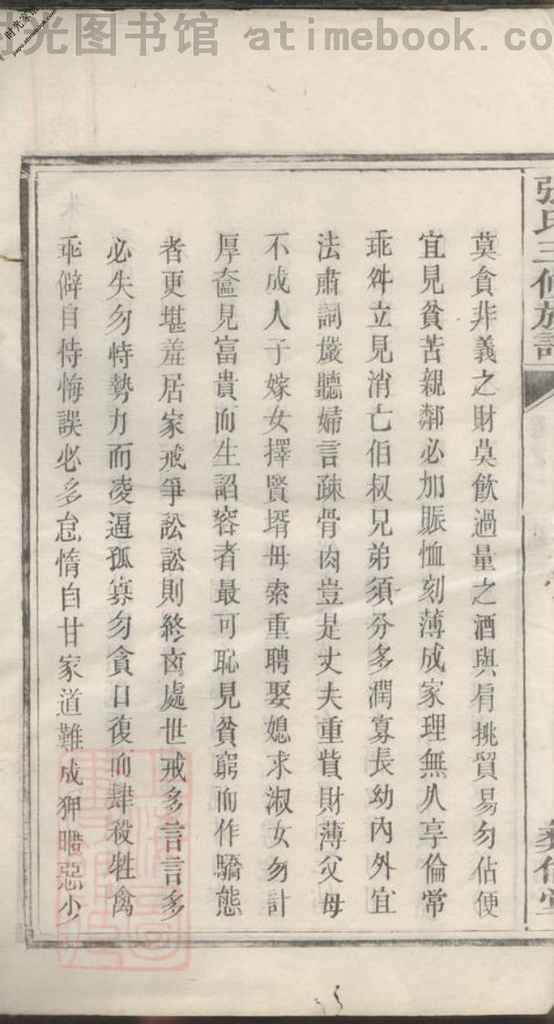 时光图书馆 atimebook.co
張氏三修族譜
莫貪非義之財莫飲過量之酒與肩挑貿易勿佔便
宜見貧苦親鄰必加賑恤刻薄成家理無久享倫常
乖舛立見消亡伯叔兄弟須分多潤寡長幼內外宜
法肅詞嚴聽婦言疎骨肉豈是丈夫重貲財薄父母
不成人子嫁女擇賢壻毋索重聘娶媳求淑女勿計
厚奩見富貴而生諂容者最可恥見貧窮而作驕態
者更堪羞居家戒爭訟訟則終凶處世戒多言言多
必失勿恃勢力而凌逼孤寡勿貪口復而肆殺牲禽
乖僻自恃悔誤必多怠惰自甘家道難成狎暱惡少